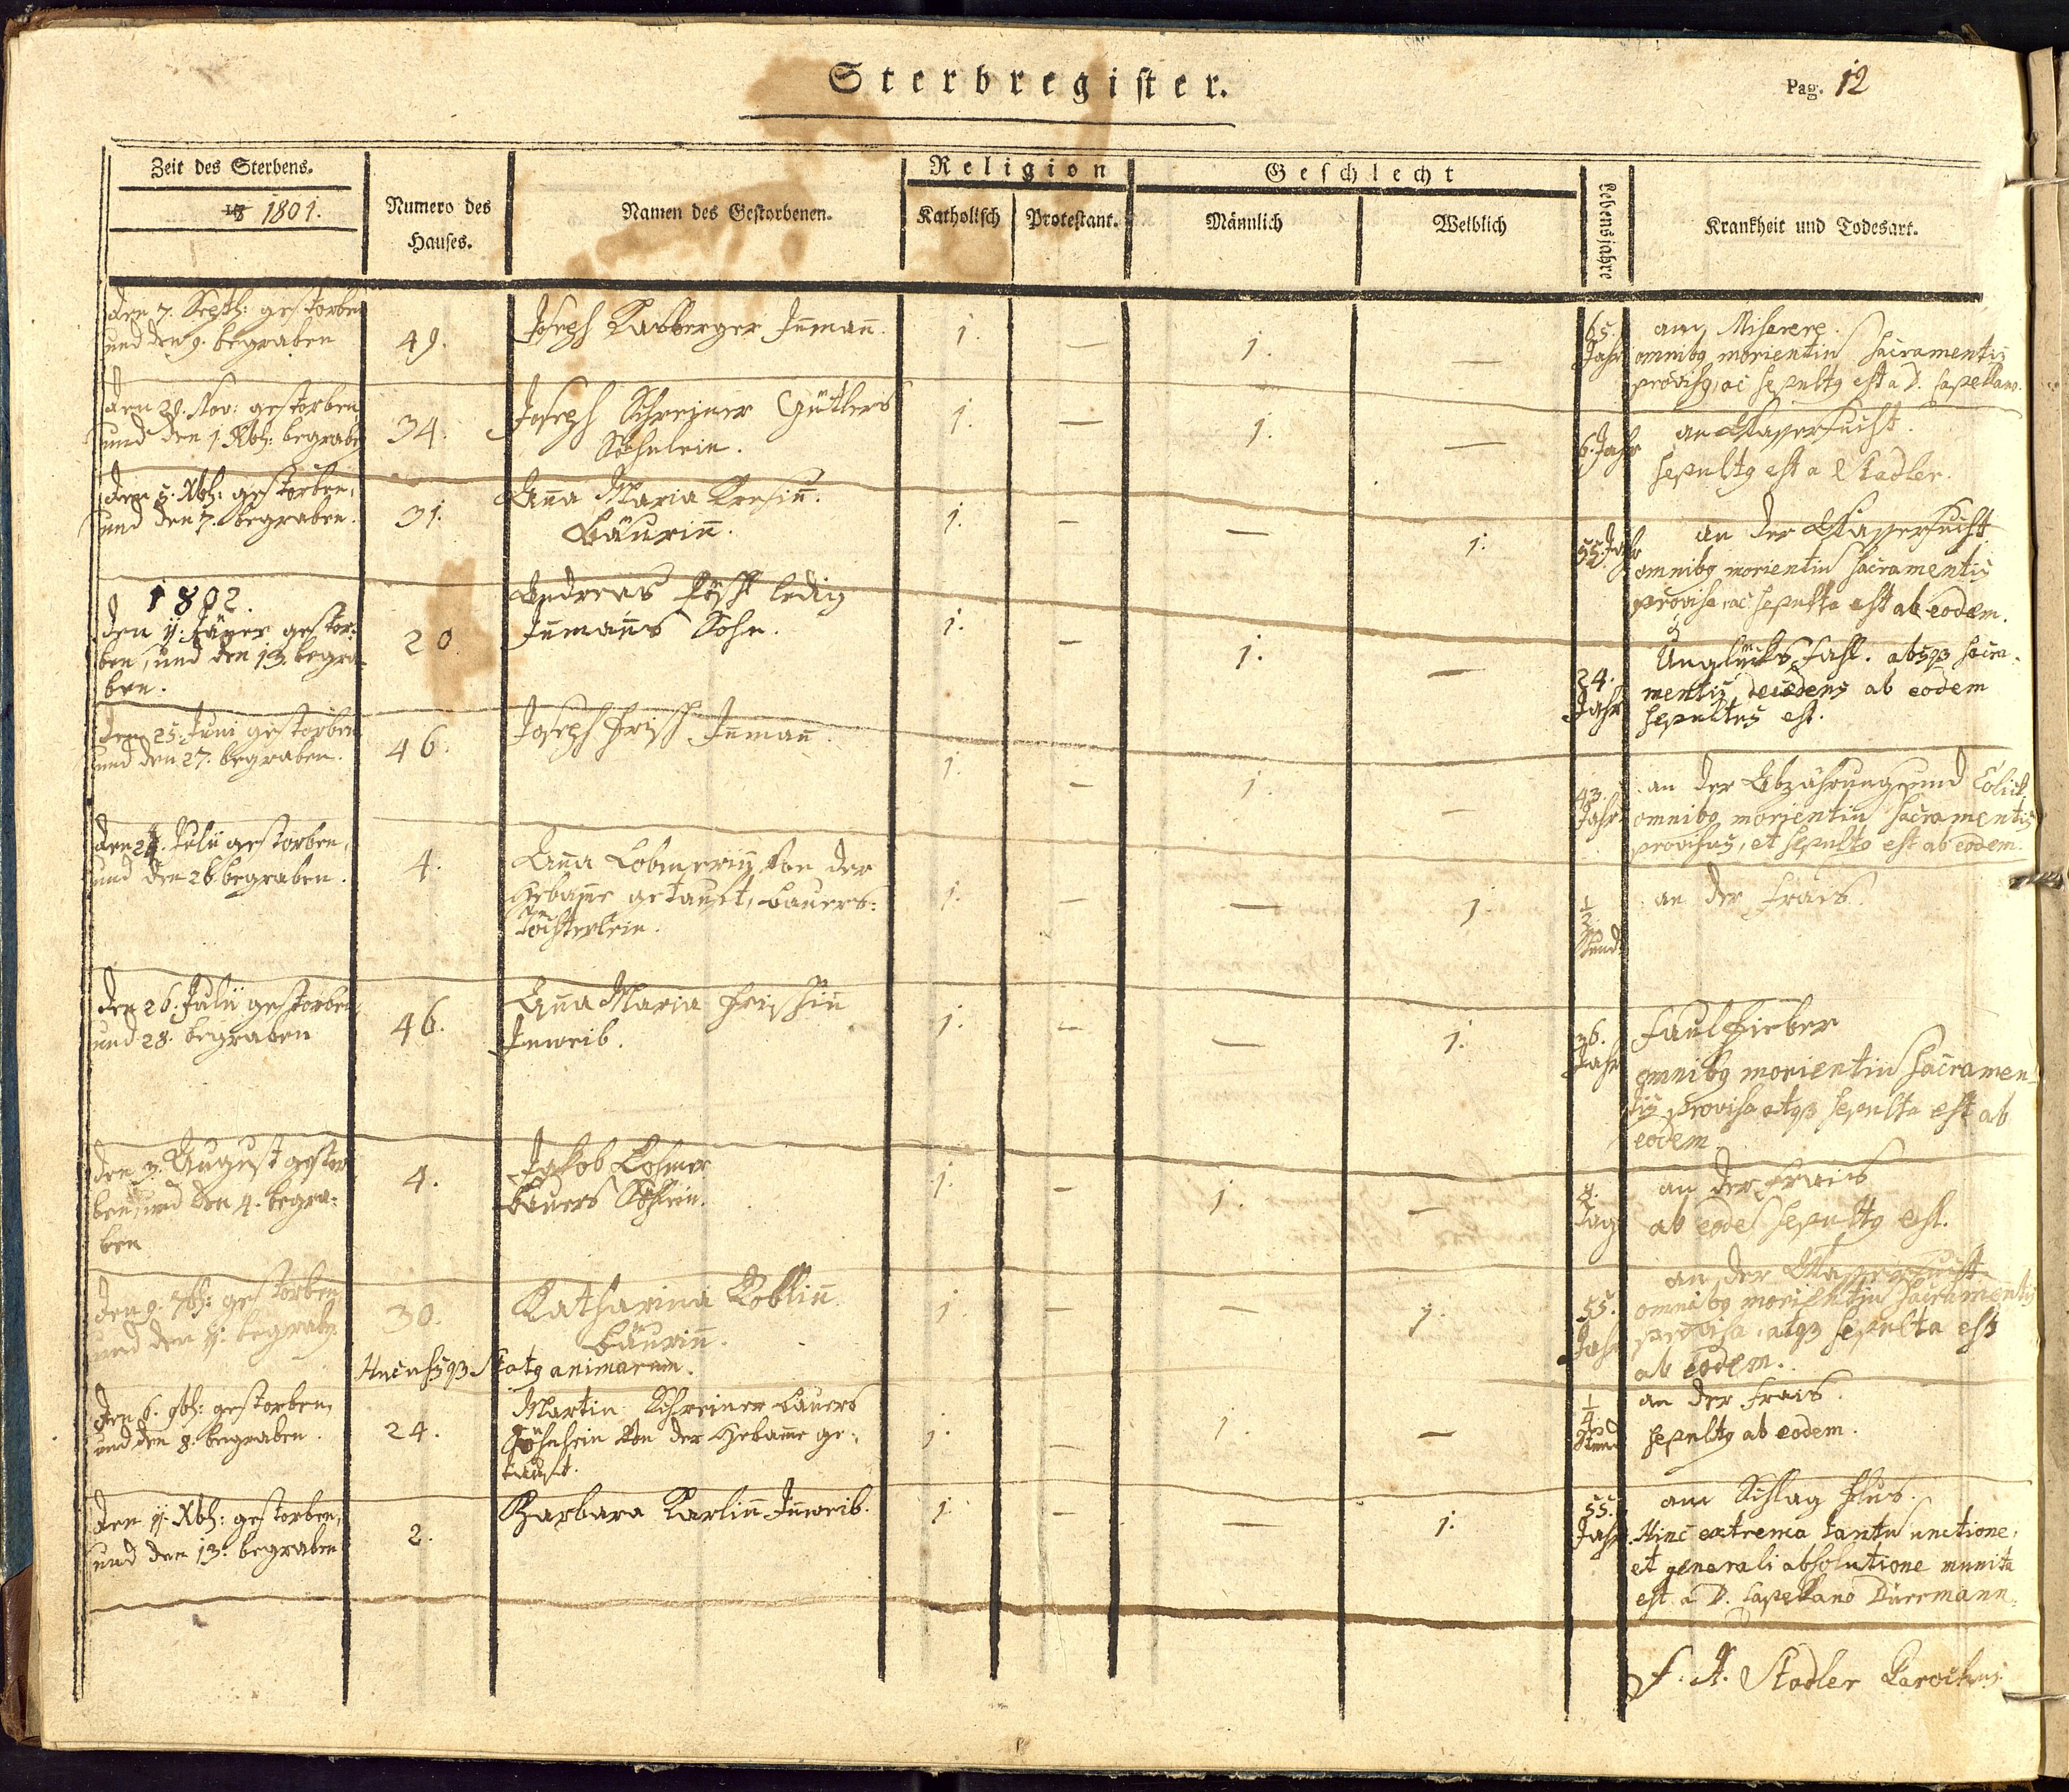 Sterbregister.
Pag. 12
Zeit des Sterbens.
18 1801.
Numero des
Hauses.
Namen des Gestorbenen.
Religion
Katholisch
Protestant.
Geschlecht
Männlich
Weiblich
Lebensjahre
Krankheit und Todesart.
den 7. Septb: gestorben
und den 9. begraben
49.
Joseph Inmann.
1.
—
1.
—
65.
Jahr
am Miserere.
omnibg morientiu Sacramentis
provisg, ac sepultg est a D. Capellano.
den 29. Nov: gestorben
und den 1. Xbh: begraben
34.
Joseph Schreiner Gütlers
Söhnlein.
1.
—
1.
—
6. Jahr
an Wassersucht.
sepultg est a Stadler.
den 5. Xbh: gestorben,
und den 7. begraben.
31.
Anna Maria
Bäurin.
1.
—
—
1.
55. Jahr
an der Wassersucht
omnibg morientiu Sacramentis
provisa, ac sepulta est ab eodem.
1802.
den 11. Jäner gestor-
ben, und den 13. begra-
ben.
20.
Andreas ledig
Inmanns Sohn.
1.
—
1.
—
24.
Jahr
Unglücksfahl. absq3 Sacra-
mentis decedens ab eodem
sepultus est.
den 25. Juni gestorben
und den 27. begraben.
46.
Joseph Frisch Inmann
1.
—
1.
—
43.
Jahr
an der Abzährung und Colick
omnibg morientiu Sacramentis
provisus, et sepultg est ab eodem.
den 24. Julii gestorben,
und den 26. begraben.
4.
Anna Lobmerin von der
Hebame getauft, Bauers:
Töchterlein.
1.
—
—
1.
1/2
Stund
an der Frais.
den 26. Julii gestorben
und 28. begraben
46.
Anna Maria Frischin
Inweib.
1.
—
—
1.
36.
Jahr
Faulfieber
omnibg morientiu Sacramen-
tis provisa atq3 sepulta est ab
eodem
den 3. August gestor
ben, und den 4. begra-
ben
4.
Jakob Lohmer
Bauers Söhlein.
1.
—
1.
—
8.
Tag
an der Frais
ab eode sepultg est.
den 9. 7bh: gestorben
und den 11. begraben
30.
Katharina
Bäurin.
1.
—
—
1.
55.
Jahr
an der Wassersucht
omnibg morientiu Sacramentis
provisa, atq3 sepulta est
ab eodem.
Hucusq3 Statg animarum.
den 6. 9bh: gestorben,
und den 8. begraben.
24.
Martin Schreiner Bauers
Söhnlein von der Hebame ge-
tauft.
1.
—
1.
—
1/4
Stund
an der Frais.
sepultg ab eodem.
den 11. Xbh: gestorben,
und den 13. begraben
2.
Barbara Karlin Inweib.
1.
—
—
1.
55.
Jahr.
am Schlag Flus.
Hinc extrema tantu unctione,
et generali absolutione munita
est a D. Capellano Dürrmann.
F. A. Stadler Parochus